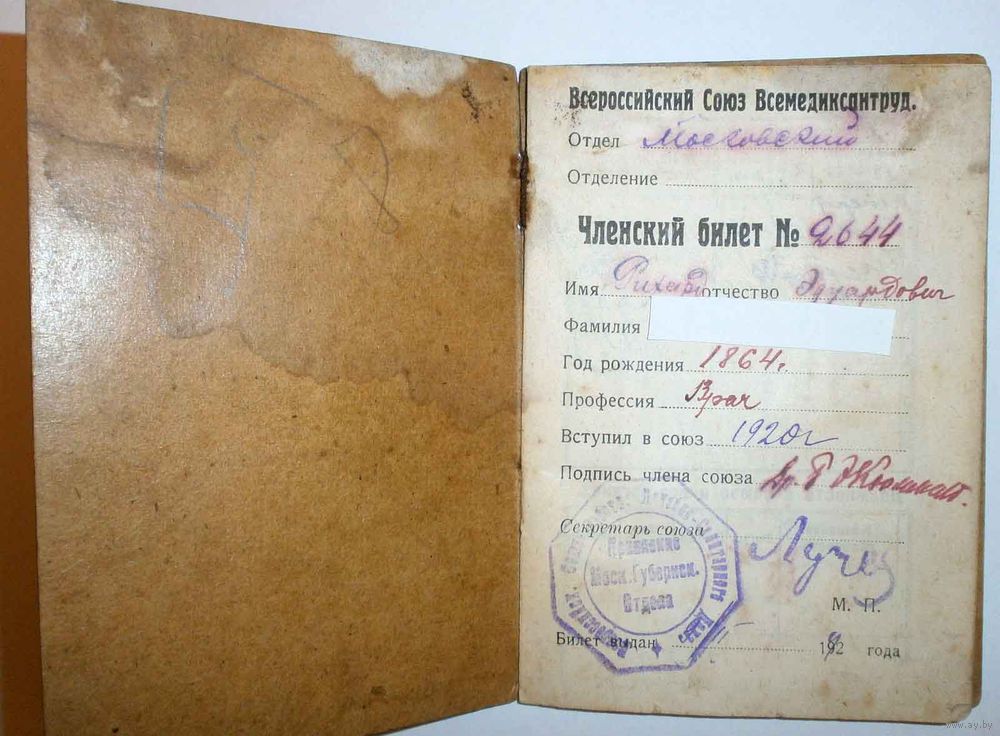 Всероссийский Союз Всемедиксантруд.
Отдел Московский
Отделение
Членский билет № 2644
Имя Рихард отчество Эдуардович
Фамилия
Год рождения 1864 г.
Профессия Врач
Вступил в союз 1920 г
Подпись члена союза
Секретарь союза
Правление
Моск. Губернск.
Отдела
М. П.
Билет выдан 192 года
www.ay.by